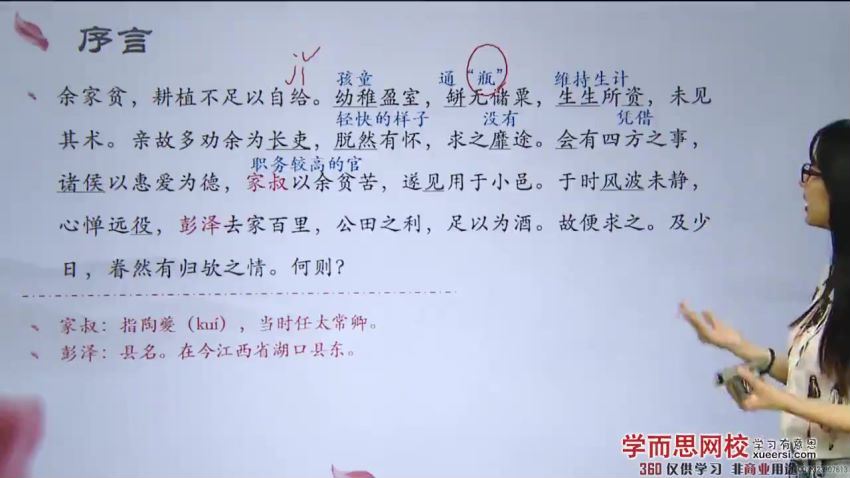 序言
孩童 通“瓶” 维持生计
余家贫，耕植不足以自给。幼稚盈室，缾无储粟，生生所资，未见
轻快的样子 没有 凭借
其术。亲故多劝余为长吏，脱然有怀，求之靡途。会有四方之事，
职务较高的官
诸侯以惠爱为德，家叔以余贫苦，遂见用于小邑。于时风波未静，
心惮远役，彭泽去家百里，公田之利，足以为酒。故便求之。及少
日，眷然有归欤之情。何则？
家叔：指陶夔（kuí），当时任太常卿。
彭泽：县名。在今江西省湖口县东。
学而思网校 学习有意思
xueersi.com
360 仅供学习 非商业用途